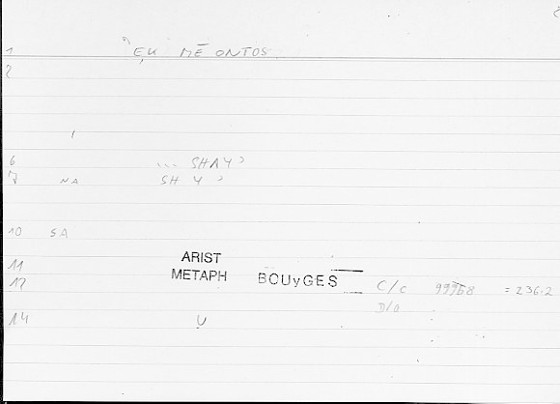 1 EK MĒ ONTOS
2
6 ... SHAY'
7 NA SH Y '
10 SA
ARIST
11
METAPH BOUYGES
12 C/c = 236.2
D/D
14